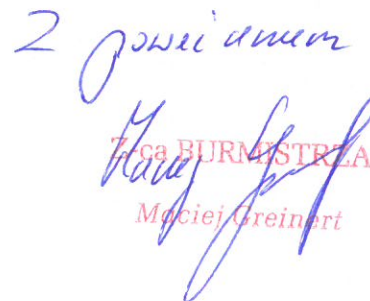 Z poważaniem
Z-ca BURMISTRZA
Maciej Greinert